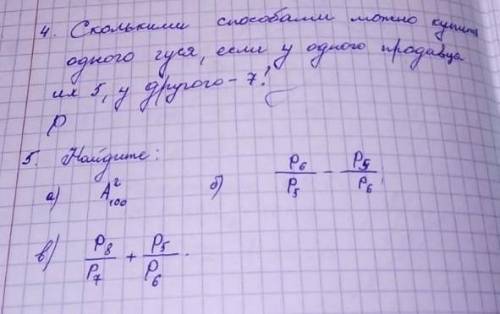 4. Сколькими способами можно купить
одного гуся, если у одного продавца
их 5, у другого - 7!
P
5. Найдите:
а) A²₁₀₀ б) P₆/P₅ - P₅/P₆
в) P₈/P₇ + P₅/P₆.